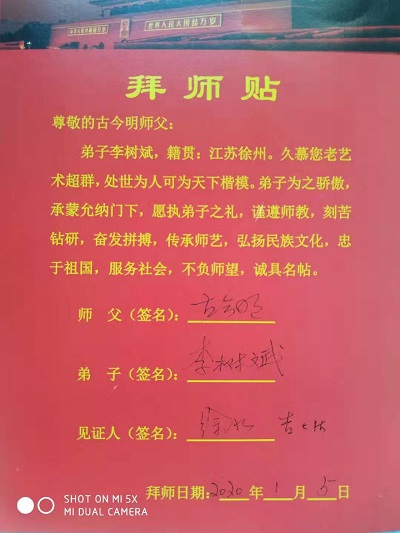 世界人民大团结万岁
拜师贴
尊敬的古今明师父：
弟子李树斌，籍贯：江苏徐州。久慕您老艺
术超群，处世为人可为天下楷模。弟子为之骄傲，
承蒙允纳门下，愿执弟子之礼，谨遵师教，刻苦
钻研，奋发拼搏，传承师艺，弘扬民族文化，忠
于祖国，服务社会，不负师望，诚具名帖。
师 父（签名）：古今明
弟 子（签名）：李树斌
见证人（签名）：
拜师日期：2020年1月5日
SHOT ON MI 5X
MI DUAL CAMERA